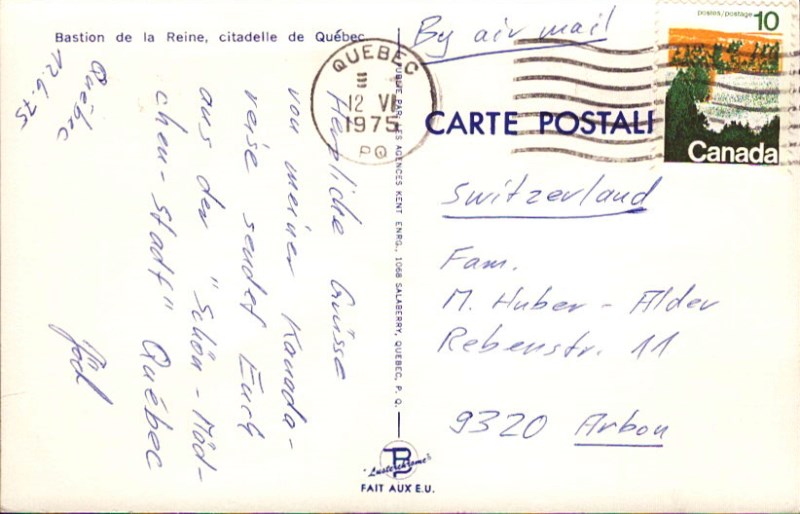 Bastion de la Reine, citadelle de Québec
Québec
12.6.75
Herzliche Grüsse
von meiner Kanada-
reise sendet Euch
aus der "Schön-Mäd-
chen-Stadt" Québec
By air mail
QUEBEC
12 VI
1975
PQ
postes/postage 10
Canada
CARTE POSTALE
PUBLIE PAR: LES AGENCES KENT ENRG., 1068 SALABERRY, QUEBEC, P. Q.
Switzerland
Fam.
M. Huber-Alder
Rebenstr. 11
9320 Arbon
"Lusterchrome"
FAIT AUX E.U.